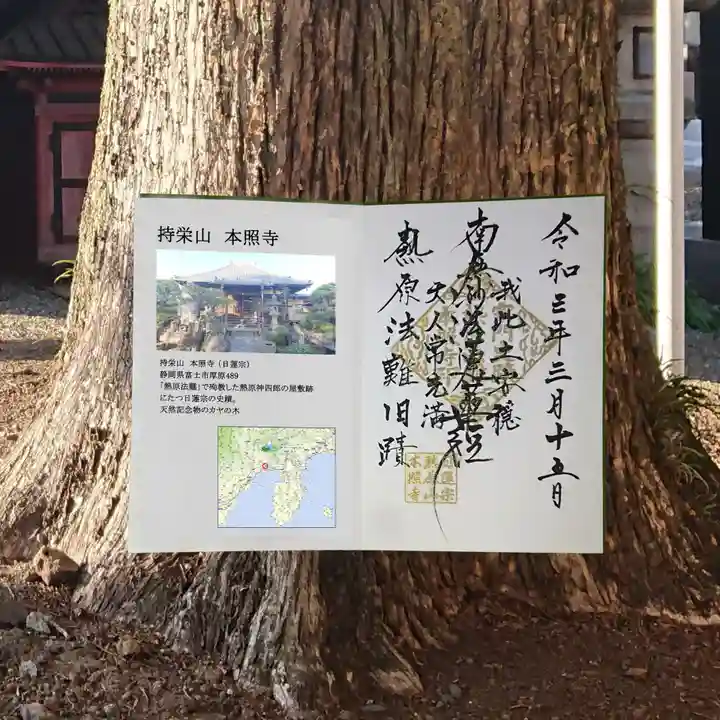 持栄山 本照寺
持栄山 本照寺（日蓮宗）
静岡県富士市厚原489
「熱原法難」で殉教した熱原神四郎の屋敷跡
にたつ日蓮宗の史蹟。
天然記念物のカヤの木
令和三年三月十五日
我此土安穏
南無妙法蓮華経
天人常充満
熱原法難旧蹟
日蓮宗
本照寺